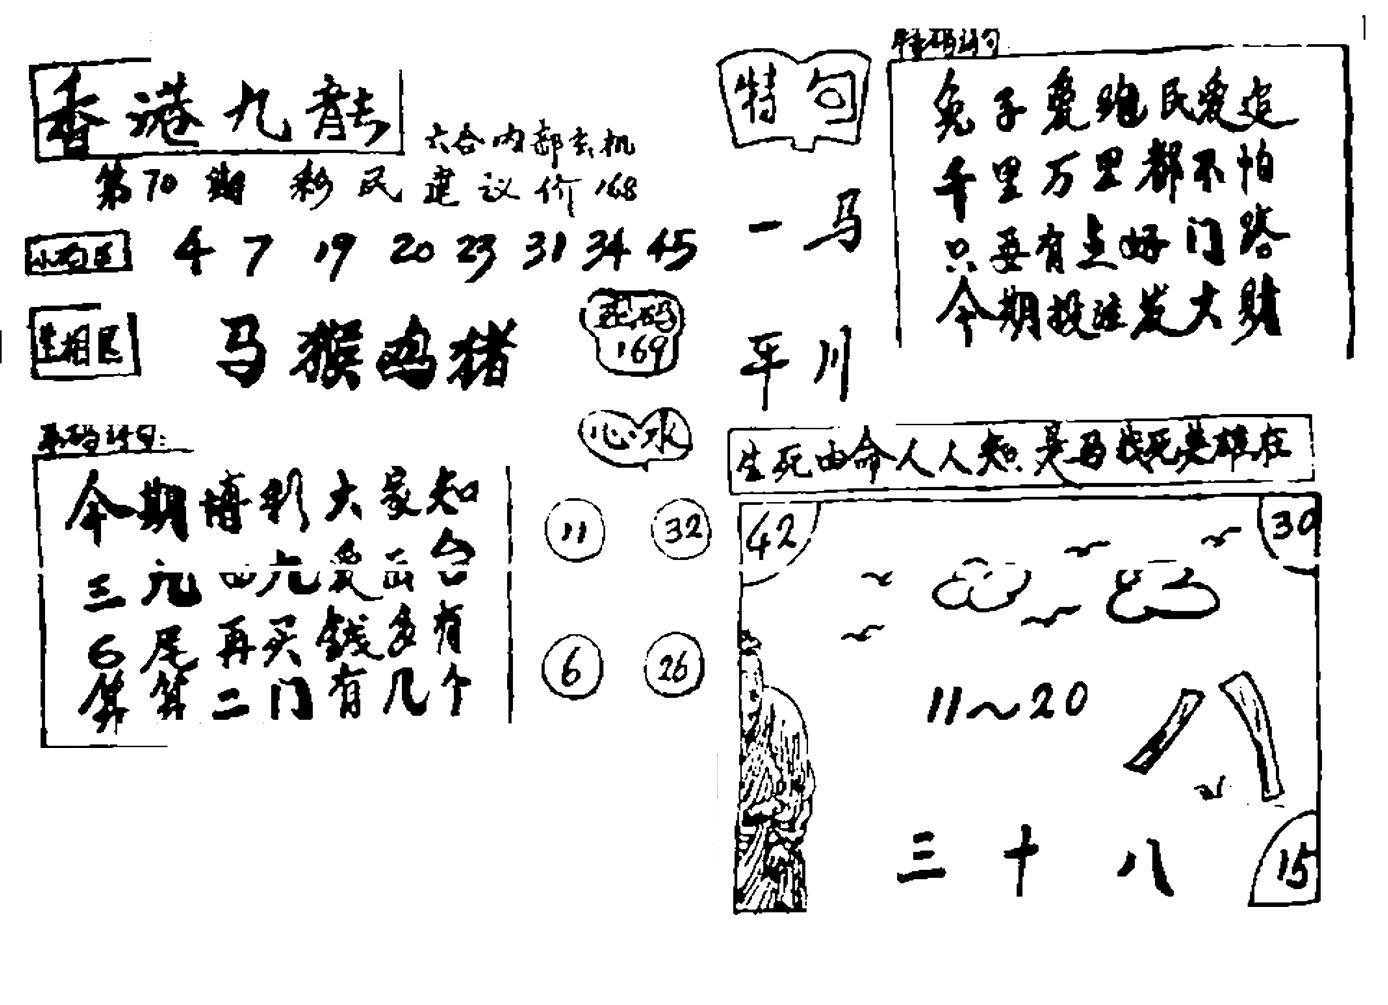 香港九龍
六合内部玄机
第70期 彩民建议价168
4 7 19 20 23 31 34 45
生相区 马猴鸡猪
169
心水
今期博彩大家知
三 四 爱 合
6尾再买钱多有
算算二门有几个
11 32
6 26
特句
一马
平川
特码诗句
兔子爱跑民爱追
千里万里都不怕
只要有点好门路
今期投准发大财
生死由命人人知是马战死英雄在
42
30
11～20
八
三十八
15